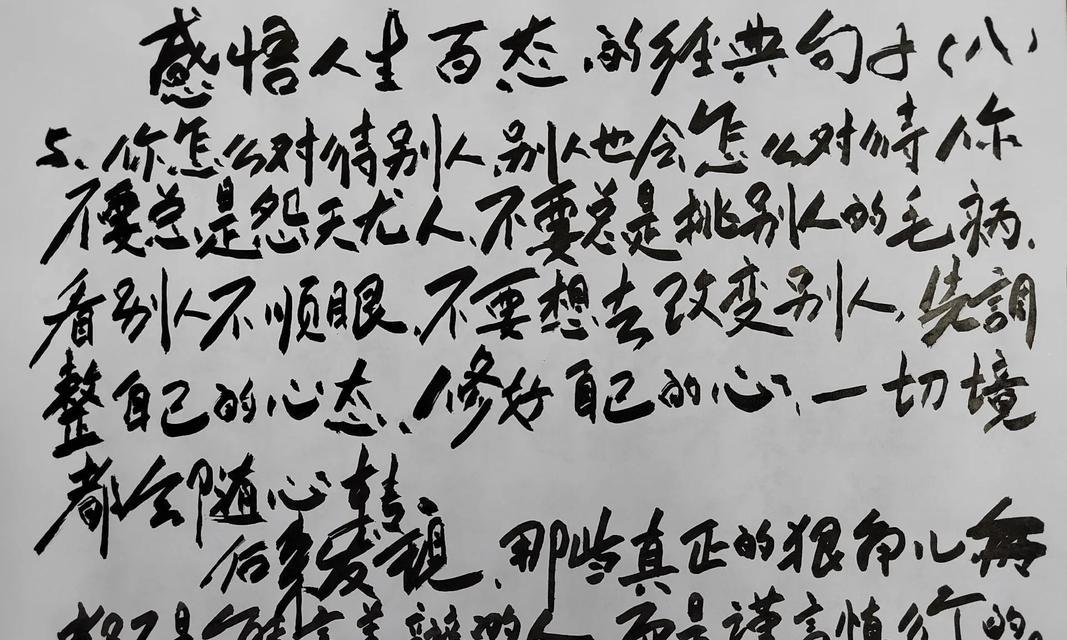 感悟人生百态的经典句子(八)
5、你怎么对待别人、别人也会怎么对待你
不要总是怨天尤人、不要总是挑别人的毛病、
看别人不顺眼、不要想去改变别人、先調
整自己的心态、修好自己的心、一切境
都会随心转。
后来发现、那些真正的狠角儿
都不是能言善辩的人、而是謹言慎行的